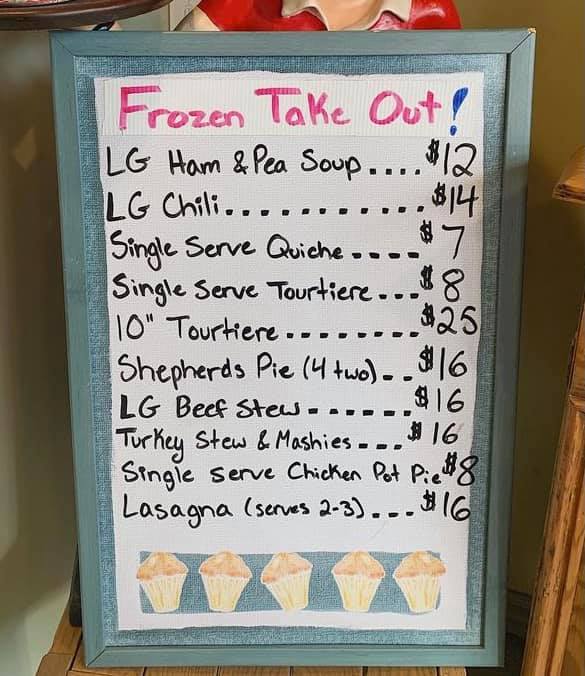 Frozen Take Out!
LG Ham & Pea Soup.... $12
LG Chili............ $14
Single Serve Quiche.... $7
Single Serve Tourtiere... $8
10" Tourtiere........ $25
Shepherds Pie (4 two).. $16
LG Beef Stew...... $16
Turkey Stew & Mashies... $16
Single Serve Chicken Pot Pie $8
Lasagna (serves 2-3)... $16